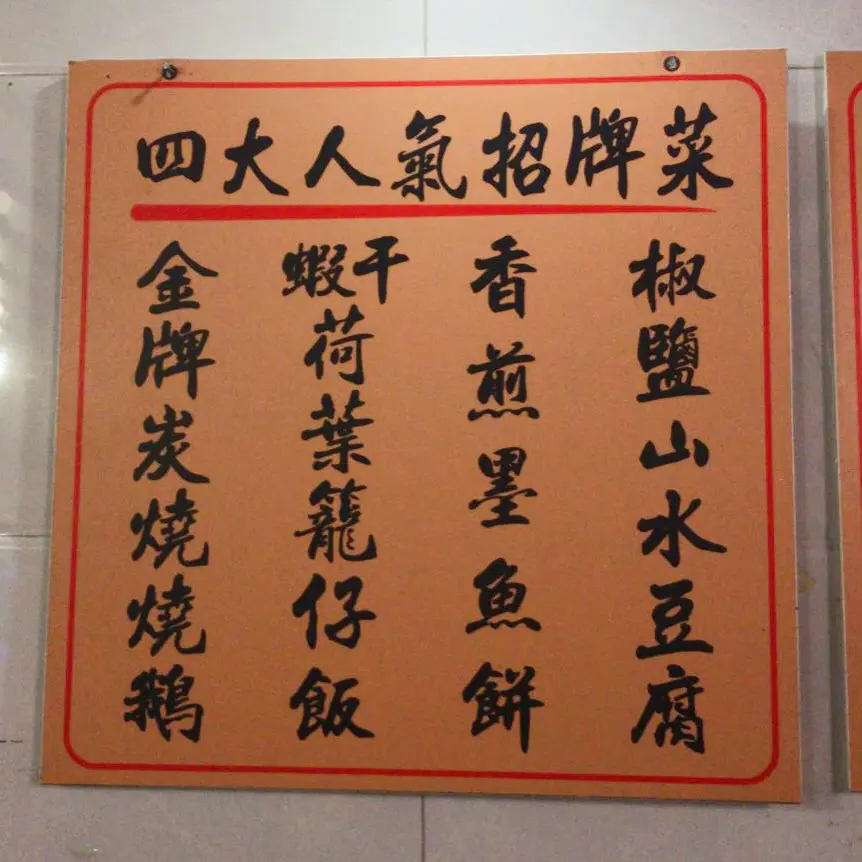 四大人氣招牌菜
椒鹽山水豆腐
香煎墨魚餅
蝦干荷葉籠仔飯
金牌炭燒燒鵝